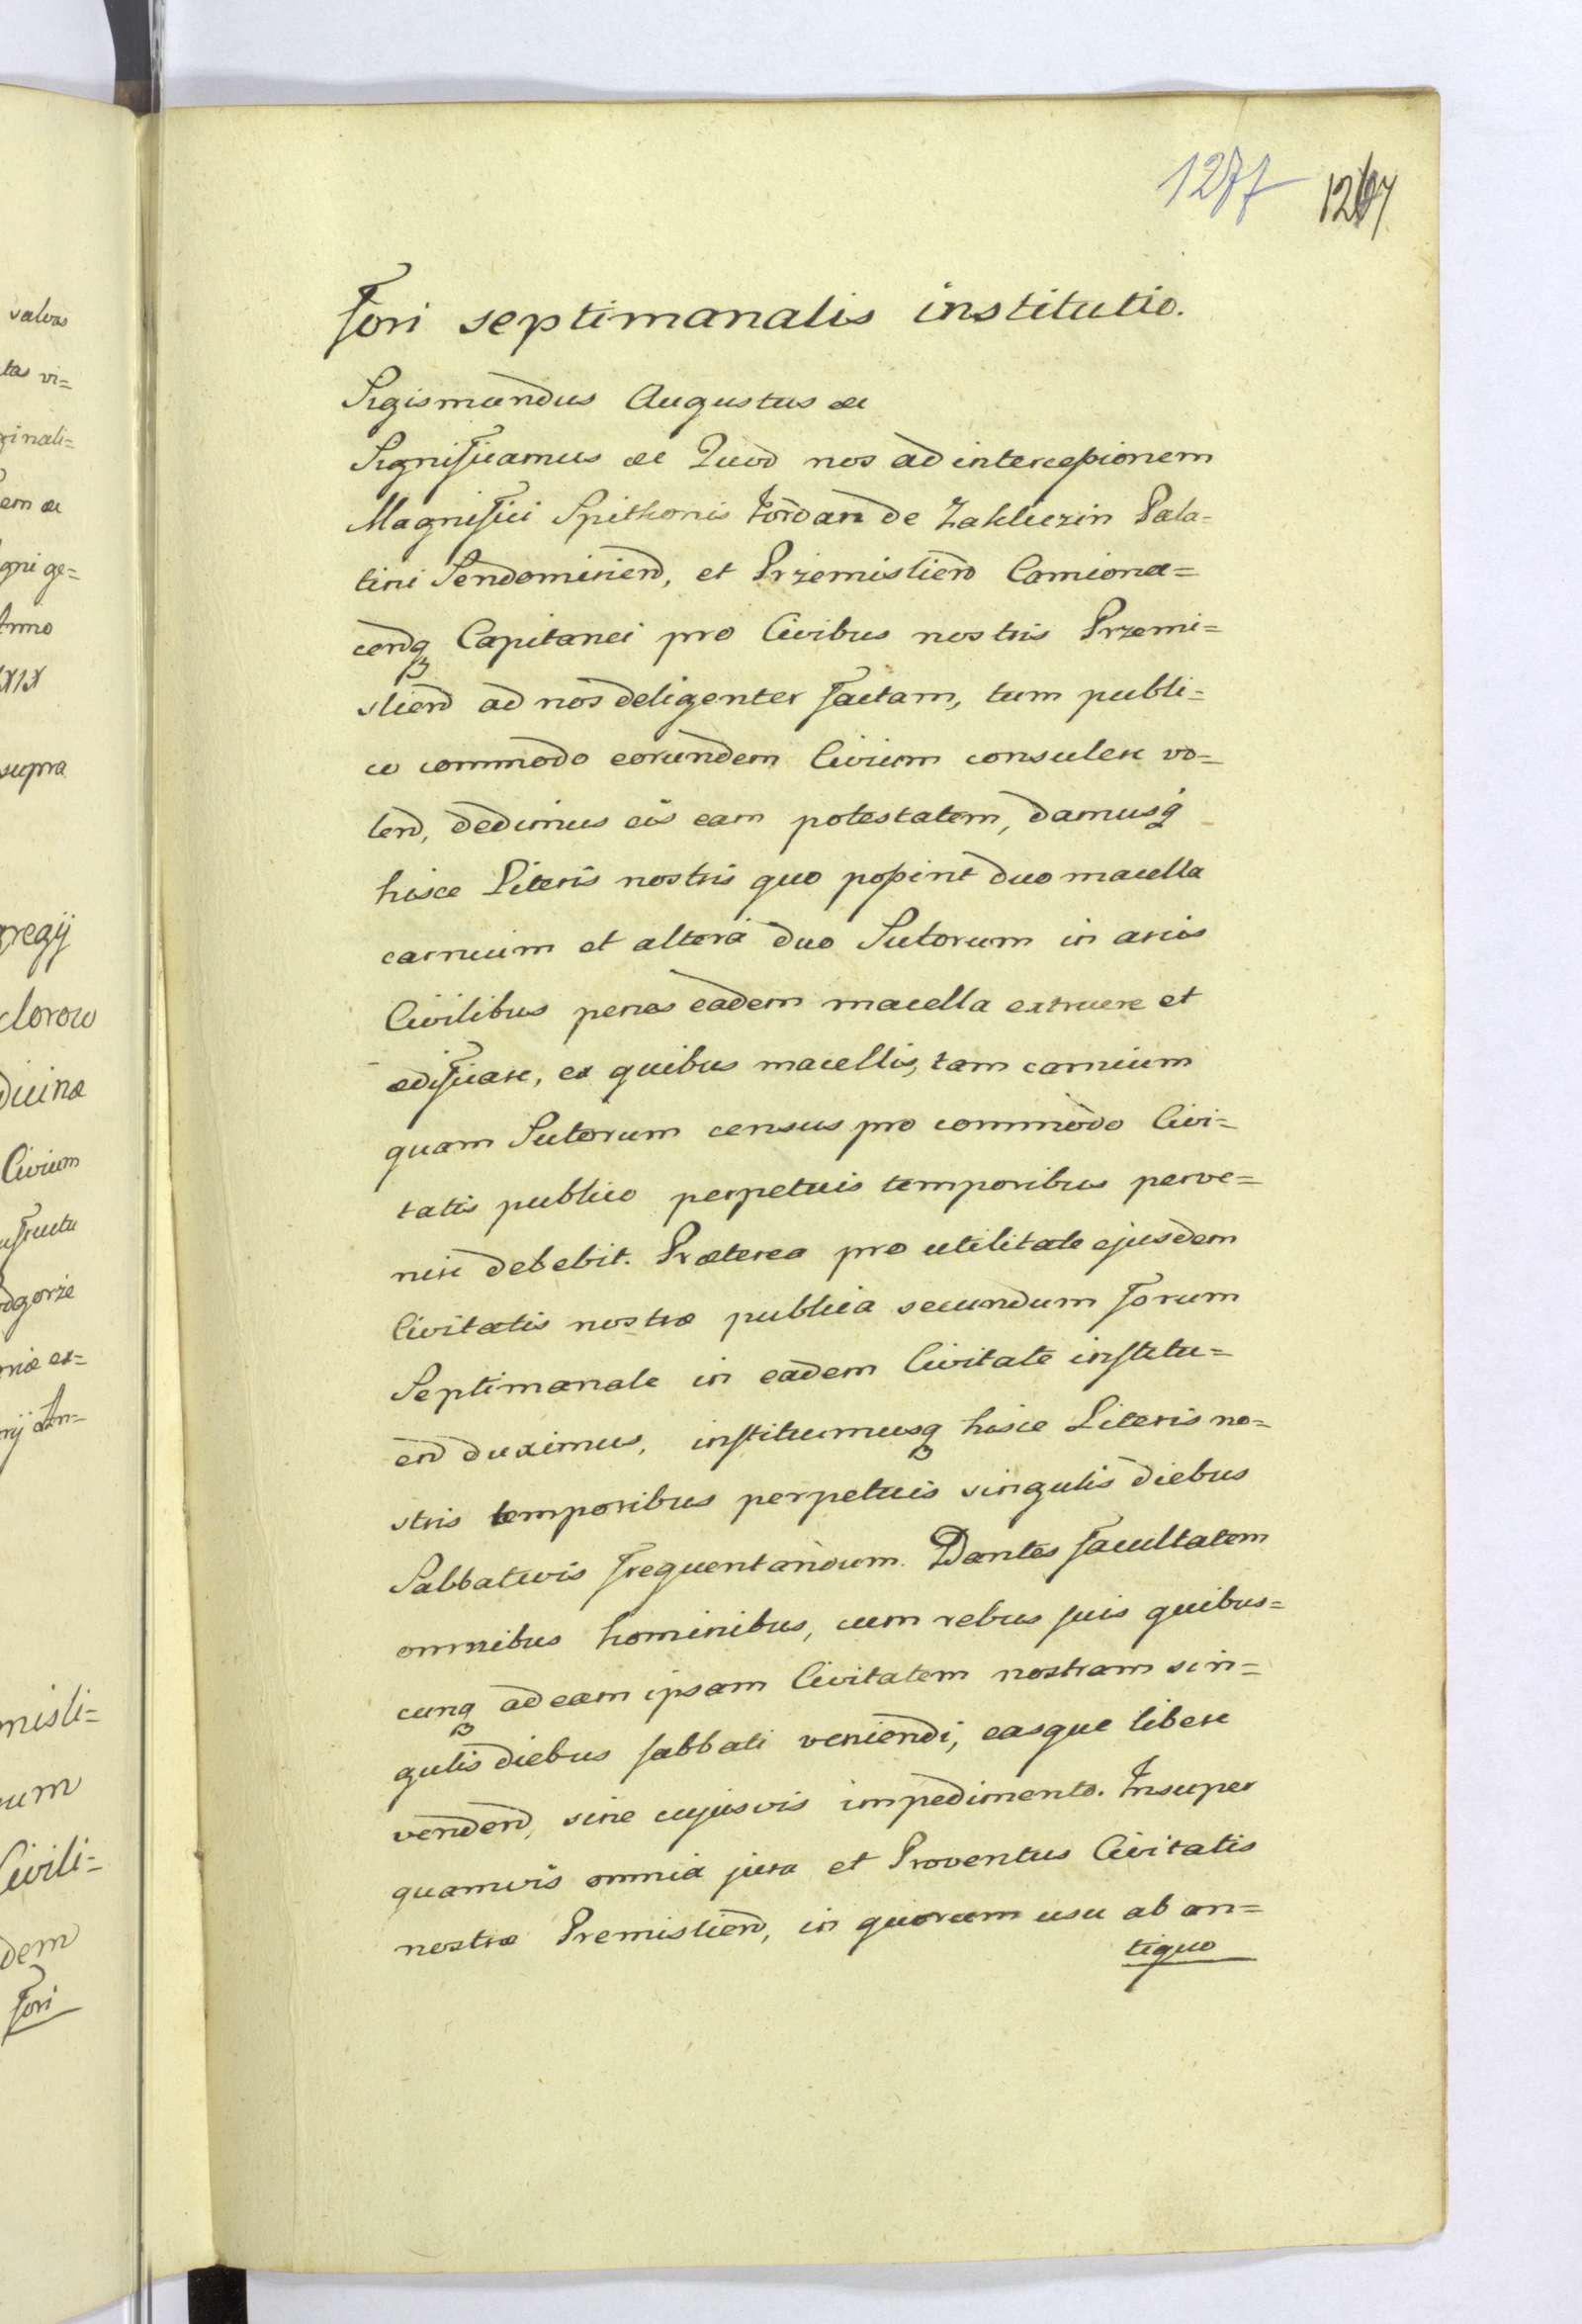 1277 1267
Fori septimanalis institutio.
Sigismundus Augustus &c
Significamus &c Quod nos ad intercessionem
Magnifici Spithonis Jordan de Zakliczin Pala=
tini Sendomirien, et Przemislien Camiona=
cenq Capitanei pro Civibus nostris Przemi=
slien ad nos deligenter factam, tum publi=
co commodo eorundem Civium consulere vo=
len, dedimus eis eam potestatem, damusq
hisce Literis nostris quo possint duo macella
carnium et altera duo Sutorum in areis
Civilibus penes eadem macella extruere et
ædificare, ex quibus macellis, tam carnium
quam Sutorum census pro commodo Civi=
tatis publico perpetuis temporibus perve=
nire debebit. Præterea pro utilitate ejusdem
Civitatis nostræ publica secundum Forum
Septimanale in eadem Civitate institu=
en duximus, instituimusq hisce Literis no=
stris temporibus perpetuis singulis diebus
Sabbativis frequentandum. Dantes facultatem
omnibus hominibus, cum rebus suis quibus=
cunq ad eam ipsam Civitatem nostram sin=
gulis diebus sabbati veniendi, easque libere
venden, sine cujusvis impedimento. Insuper
quamvis omnia jura et Proventus Civitatis
nostræ Premislien, in quorum usu ab an=
tiquo